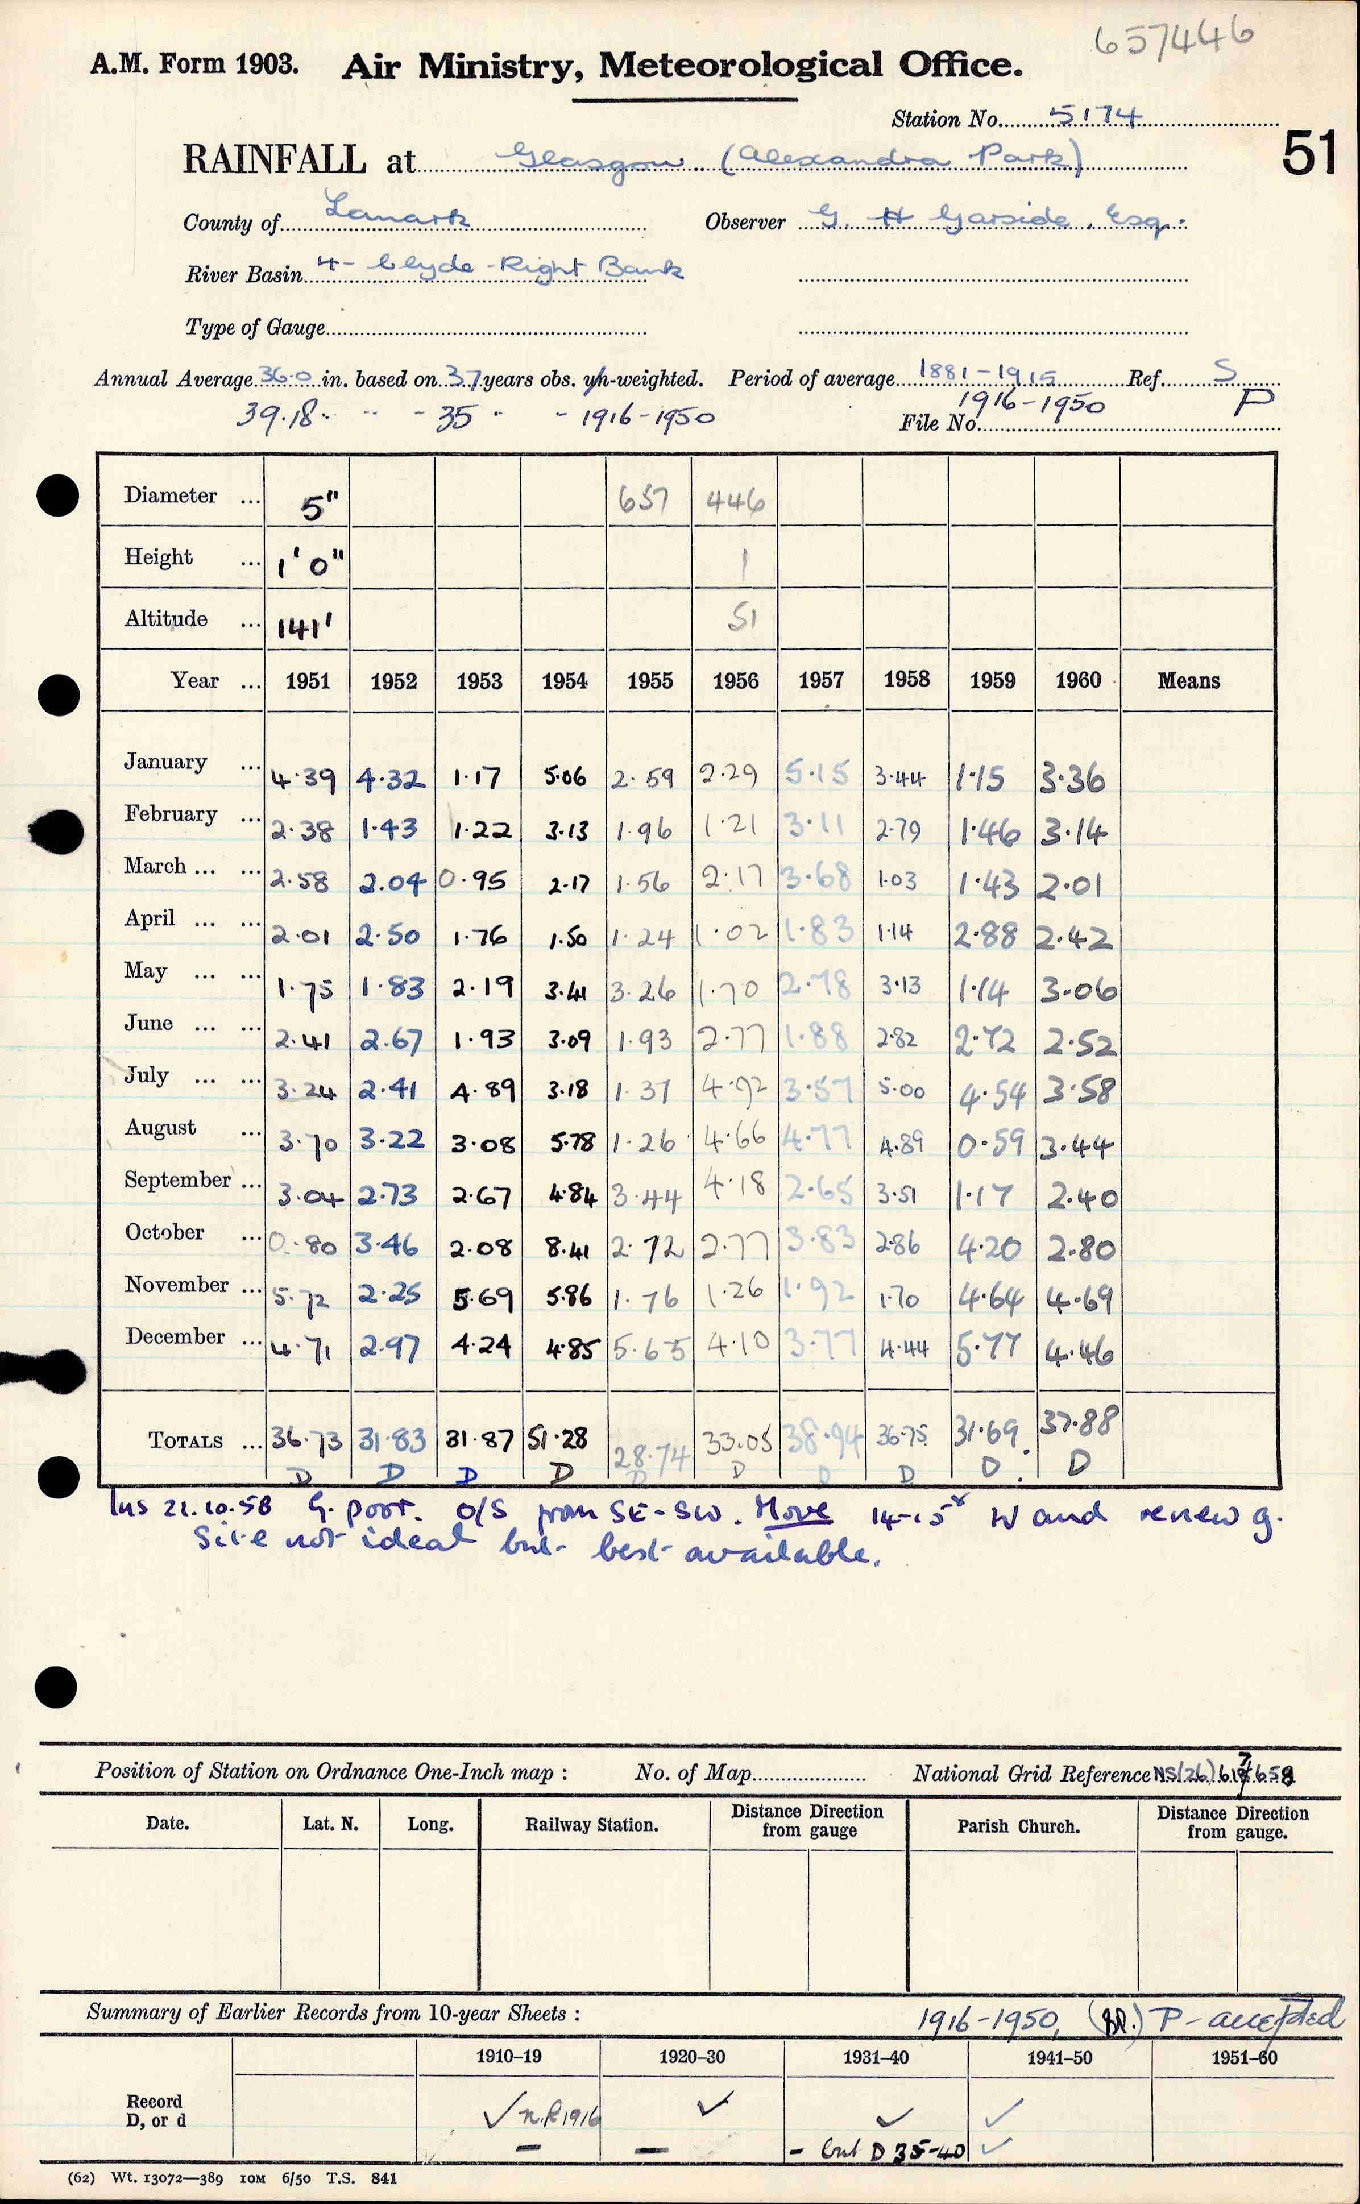 657446
A.M. Form 1903. Air Ministry, Meteorological Office.
Station No. 5174
51
RAINFALL at Glasgow (Alexandra Park)
County of Lanark Observer G. H Garside, Esq.
River Basin 4- Clyde-Right Bank
Type of Gauge
Annual Average 36.0 in. based on 37 years obs. un-weighted. Period of average 1881-1915 Ref. S
39.18. " - 35 " - 1916-1950 1916-1950 P
File No.
Diameter ... 5" 657 446
Height ... 1' 0" 1
Altitude ... 141' 51
Year ... 1951 1952 1953 1954 1955 1956 1957 1958 1959 1960 Means
January ... 4.39 4.32 1.17 5.06 2.59 2.29 5.15 3.44 1.15 3.36
February ... 2.38 1.43 1.22 3.13 1.96 1.21 3.11 2.79 1.46 3.14
March ... ... 2.58 2.04 0.95 2.17 1.56 2.17 3.68 1.03 1.43 2.01
April ... ... 2.01 2.50 1.76 1.50 1.24 1.02 1.83 1.14 2.88 2.42
May ... ... 1.75 1.83 2.19 3.41 3.26 1.70 2.78 3.13 1.14 3.06
June ... ... 2.41 2.67 1.93 3.09 1.93 2.77 1.88 2.82 2.72 2.52
July ... ... 3.24 2.41 4.89 3.18 1.37 4.92 3.57 5.00 4.54 3.58
August ... 3.70 3.22 3.08 5.78 1.26 4.66 4.77 4.89 0.59 3.44
September ... 3.04 2.73 2.67 4.84 3.44 4.18 2.65 3.51 1.17 2.40
October ... 0.80 3.46 2.08 8.41 2.72 2.77 3.83 2.86 4.20 2.80
November ... 5.72 2.25 5.69 5.86 1.76 1.26 1.92 1.70 4.64 4.69
December ... 4.71 2.97 4.24 4.85 5.65 4.10 3.77 4.44 5.77 4.46
TOTALS ... 36.73 31.83 31.87 51.28 28.74 33.05 38.94 36.75 31.69 37.88
D D D D D D D D D D
Ins 21.10.58 G. poor. O/S from SE-SW. Move 14-15x W and renew g.
Site not ideal but best available.
Position of Station on Ordnance One-Inch map : No. of Map National Grid Reference NS(26)
Date. Lat. N. Long. Railway Station. Distance Direction from gauge Parish Church. Distance Direction from gauge.
Summary of Earlier Records from 10-year Sheets : 1916-1950, (BR.) P-accepted
1910-19 1920-30 1931-40 1941-50 1951-60
Record ✓ n.R 1916 ✓ ✓ ✓
D, or d - - - but D 35-40 ✓
(62) Wt. 13072—389 10M 6/50 T.S. 841